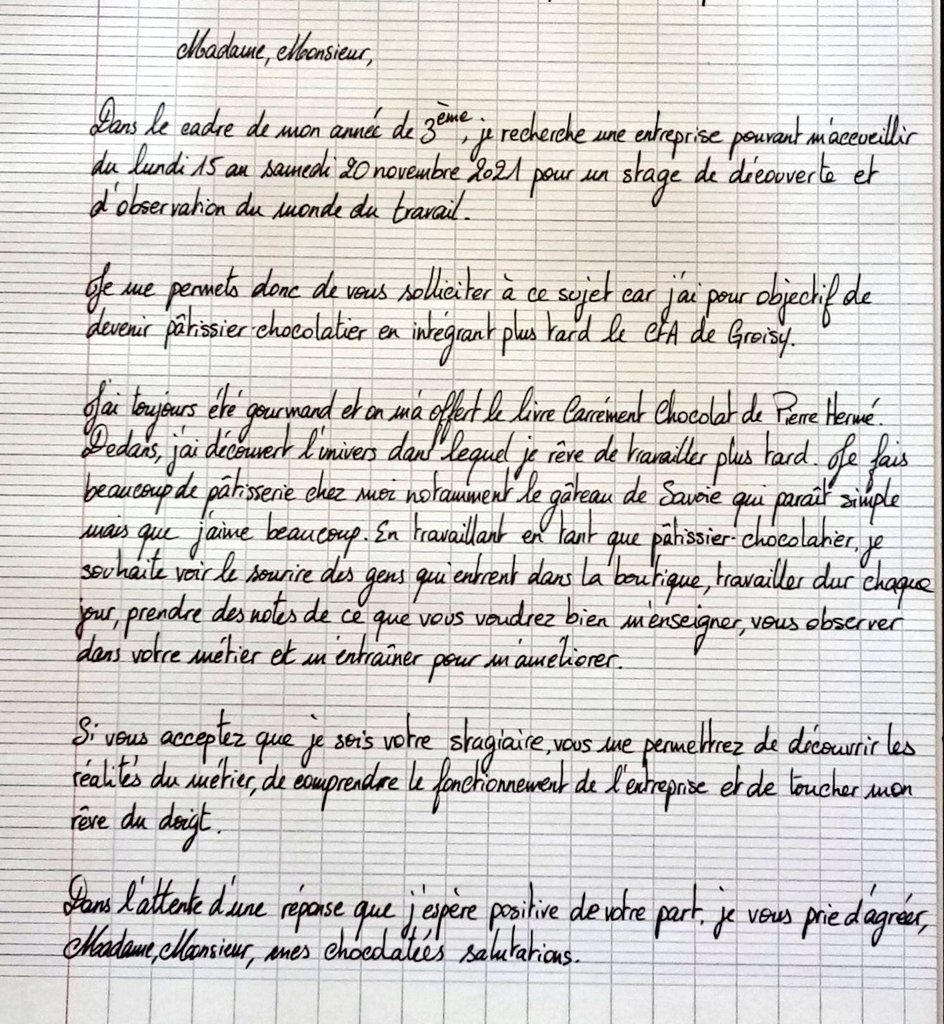 Madame, Monsieur,
Dans le cadre de mon année de 3ème, je recherche une entreprise pouvant m'acceuillir
du lundi 15 au samedi 20 novembre 2021 pour un stage de découverte et
d'observation du monde du travail.
Je me permets donc de vous solliciter à ce sujet car j'ai pour objectif de
devenir pâtissier-chocolatier en intégrant plus tard le CFA de Groisy.
J'ai toujours été gourmand et on m'a offert le livre Carrément Chocolat de Pierre Hermé.
Dedans, j'ai découvert l'univers dans lequel je rêve de travailler plus tard. Je fais
beaucoup de pâtisserie chez moi notamment le gâteau de Savoie qui paraît simple
mais que j'aime beaucoup. En travaillant en tant que pâtissier-chocolatier, je
souhaite voir le sourire des gens qui entrent dans la boutique, travailler dur chaque
jour, prendre des notes de ce que vous voudrez bien m'enseigner, vous observer
dans votre métier et m'entraîner pour m'améliorer.
Si vous acceptez que je sois votre stagiaire, vous me permettrez de découvrir les
réalités du métier, de comprendre le fonctionnement de l'entreprise et de toucher mon
rêve du doigt.
Dans l'attente d'une réponse que j'espère positive de votre part, je vous prie d'agréer,
Madame, Monsieur, mes chocolatées salutations.